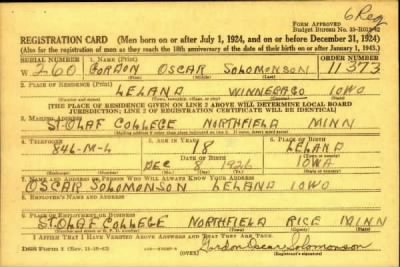 6 Reg
FORM APPROVED
REGISTRATION CARD (Men born on or after July 1, 1924, and on or before December 31, 1924)
(Also for the registration of men as they reach the 18th anniversary of the date of their birth on or after January 1, 1943.)
SERIAL NUMBER 1. NAME (Print) ORDER NUMBER
W 260 GORDON OSCAR SOLOMONSON 11373
2. PLACE OF RESIDENCE (Print)
LELAND WINNEBAGO IOWO
[THE PLACE OF RESIDENCE GIVEN ON LINE 2 ABOVE WILL DETERMINE LOCAL BOARD
JURISDICTION; LINE 2 OF REGISTRATION CERTIFICATE WILL BE IDENTICAL]
3. MAILING ADDRESS
ST. OLAF COLLEGE NORTHFIELD MINN
4. TELEPHONE 5. AGE IN YEARS 6. PLACE OF BIRTH
846-M-L 18 LELAND
DATE OF BIRTH
DEC 8 IOWA
7. NAME AND ADDRESS OF PERSON WHO WILL ALWAYS KNOW YOUR ADDRESS
OSCAR SOLOMONSON LELAND IOWO
8. EMPLOYER'S NAME AND ADDRESS
9. PLACE OF EMPLOYMENT OR BUSINESS
ST. OLAF COLLEGE NORTHFIELD RICE MINN
I AFFIRM THAT I HAVE VERIFIED ABOVE ANSWERS AND THAT THEY ARE TRUE.
DSS Form 1 (OVER) Gordon Oscar Solomonson
(Registrant's signature)